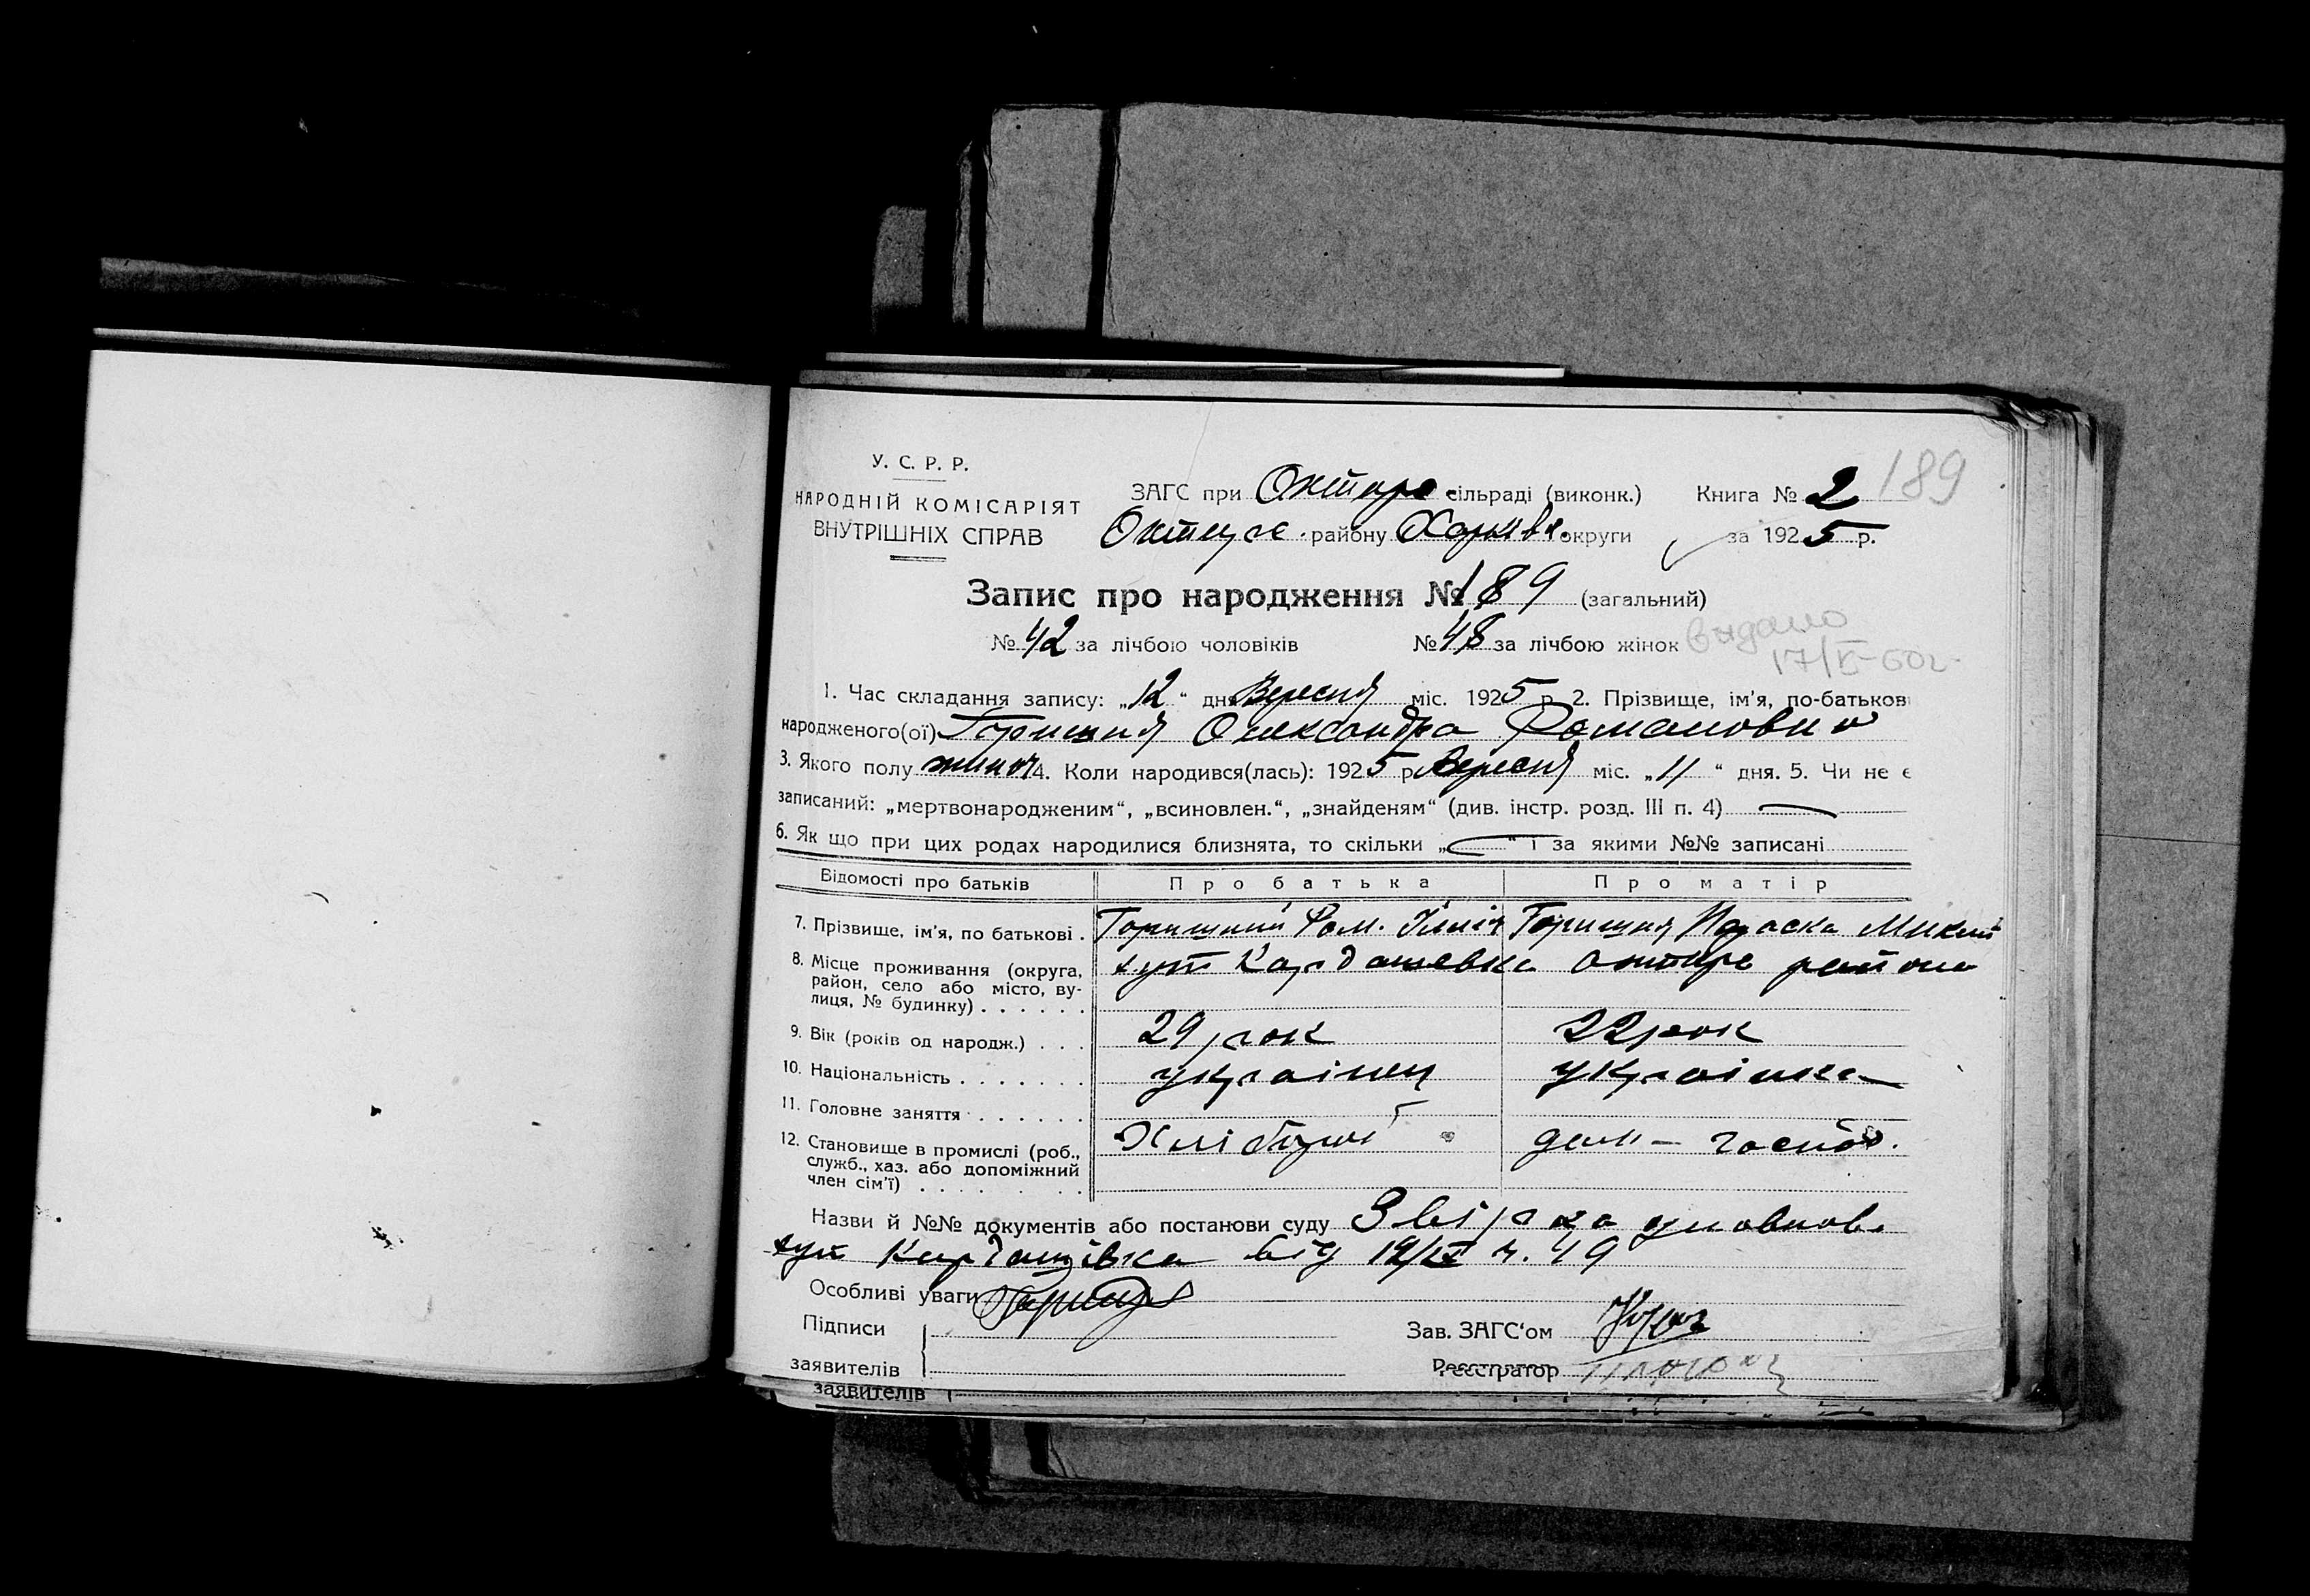 У. С. Р. Р.
НАРОДНІЙ КОМІСАРІЯТ
ВНУТРІШНІХ СПРАВ
ЗАГС при сільраді (виконк.) Книга № 2 189
району Харківс. округи за 1925 р.
Запис про народження № 189 (загальний)
№ 42 за лічбою чоловіків № 48 за лічбою жінок
выдано
1. Час складання запису: „12“ дня Вересня міс. 1925 р. 2. Прізвище, ім'я, по-батькові
народженого(ої) Горишня Олександра Романовна
3. Якого полу жіноч 4. Коли народився(лась): 1925 р. Вересня міс. „11“ дня. 5. Чи не є
записаний: „мертвонародженим“, „всиновлен.“, „знайденям“ (див. інстр. розд. III п. 4) —
6. Як що при цих родах народилися близнята, то скільки „—“ і за якими №№ записані
Відомості про батьків Про батька Про матір
7. Прізвище, ім'я, по батькові . Горишний Ром. Ілліч Горишня Параска Микит
8. Місце проживання (округа, хут Кардашевка Охтирс района
район, село або місто, ву-
лиця, № будинку) . . . . . .
9. Вік (років од народж.) . . . 29 рок 22 рок
10. Національність . . . . . . . українец українка
11. Головне заняття . . . . . .
12. Становище в промислі (роб., Хлібороб дом — господ.
служб., хаз. або допоміжний
член сім'ї) . . . . . . .
Назви й №№ документів або постанови суду уповнов.
хут Кардашівка від 12/IX ч. 49
Особливі уваги
Підписи Зав. ЗАГС'ом
заявителів Реєстратор
заявителів